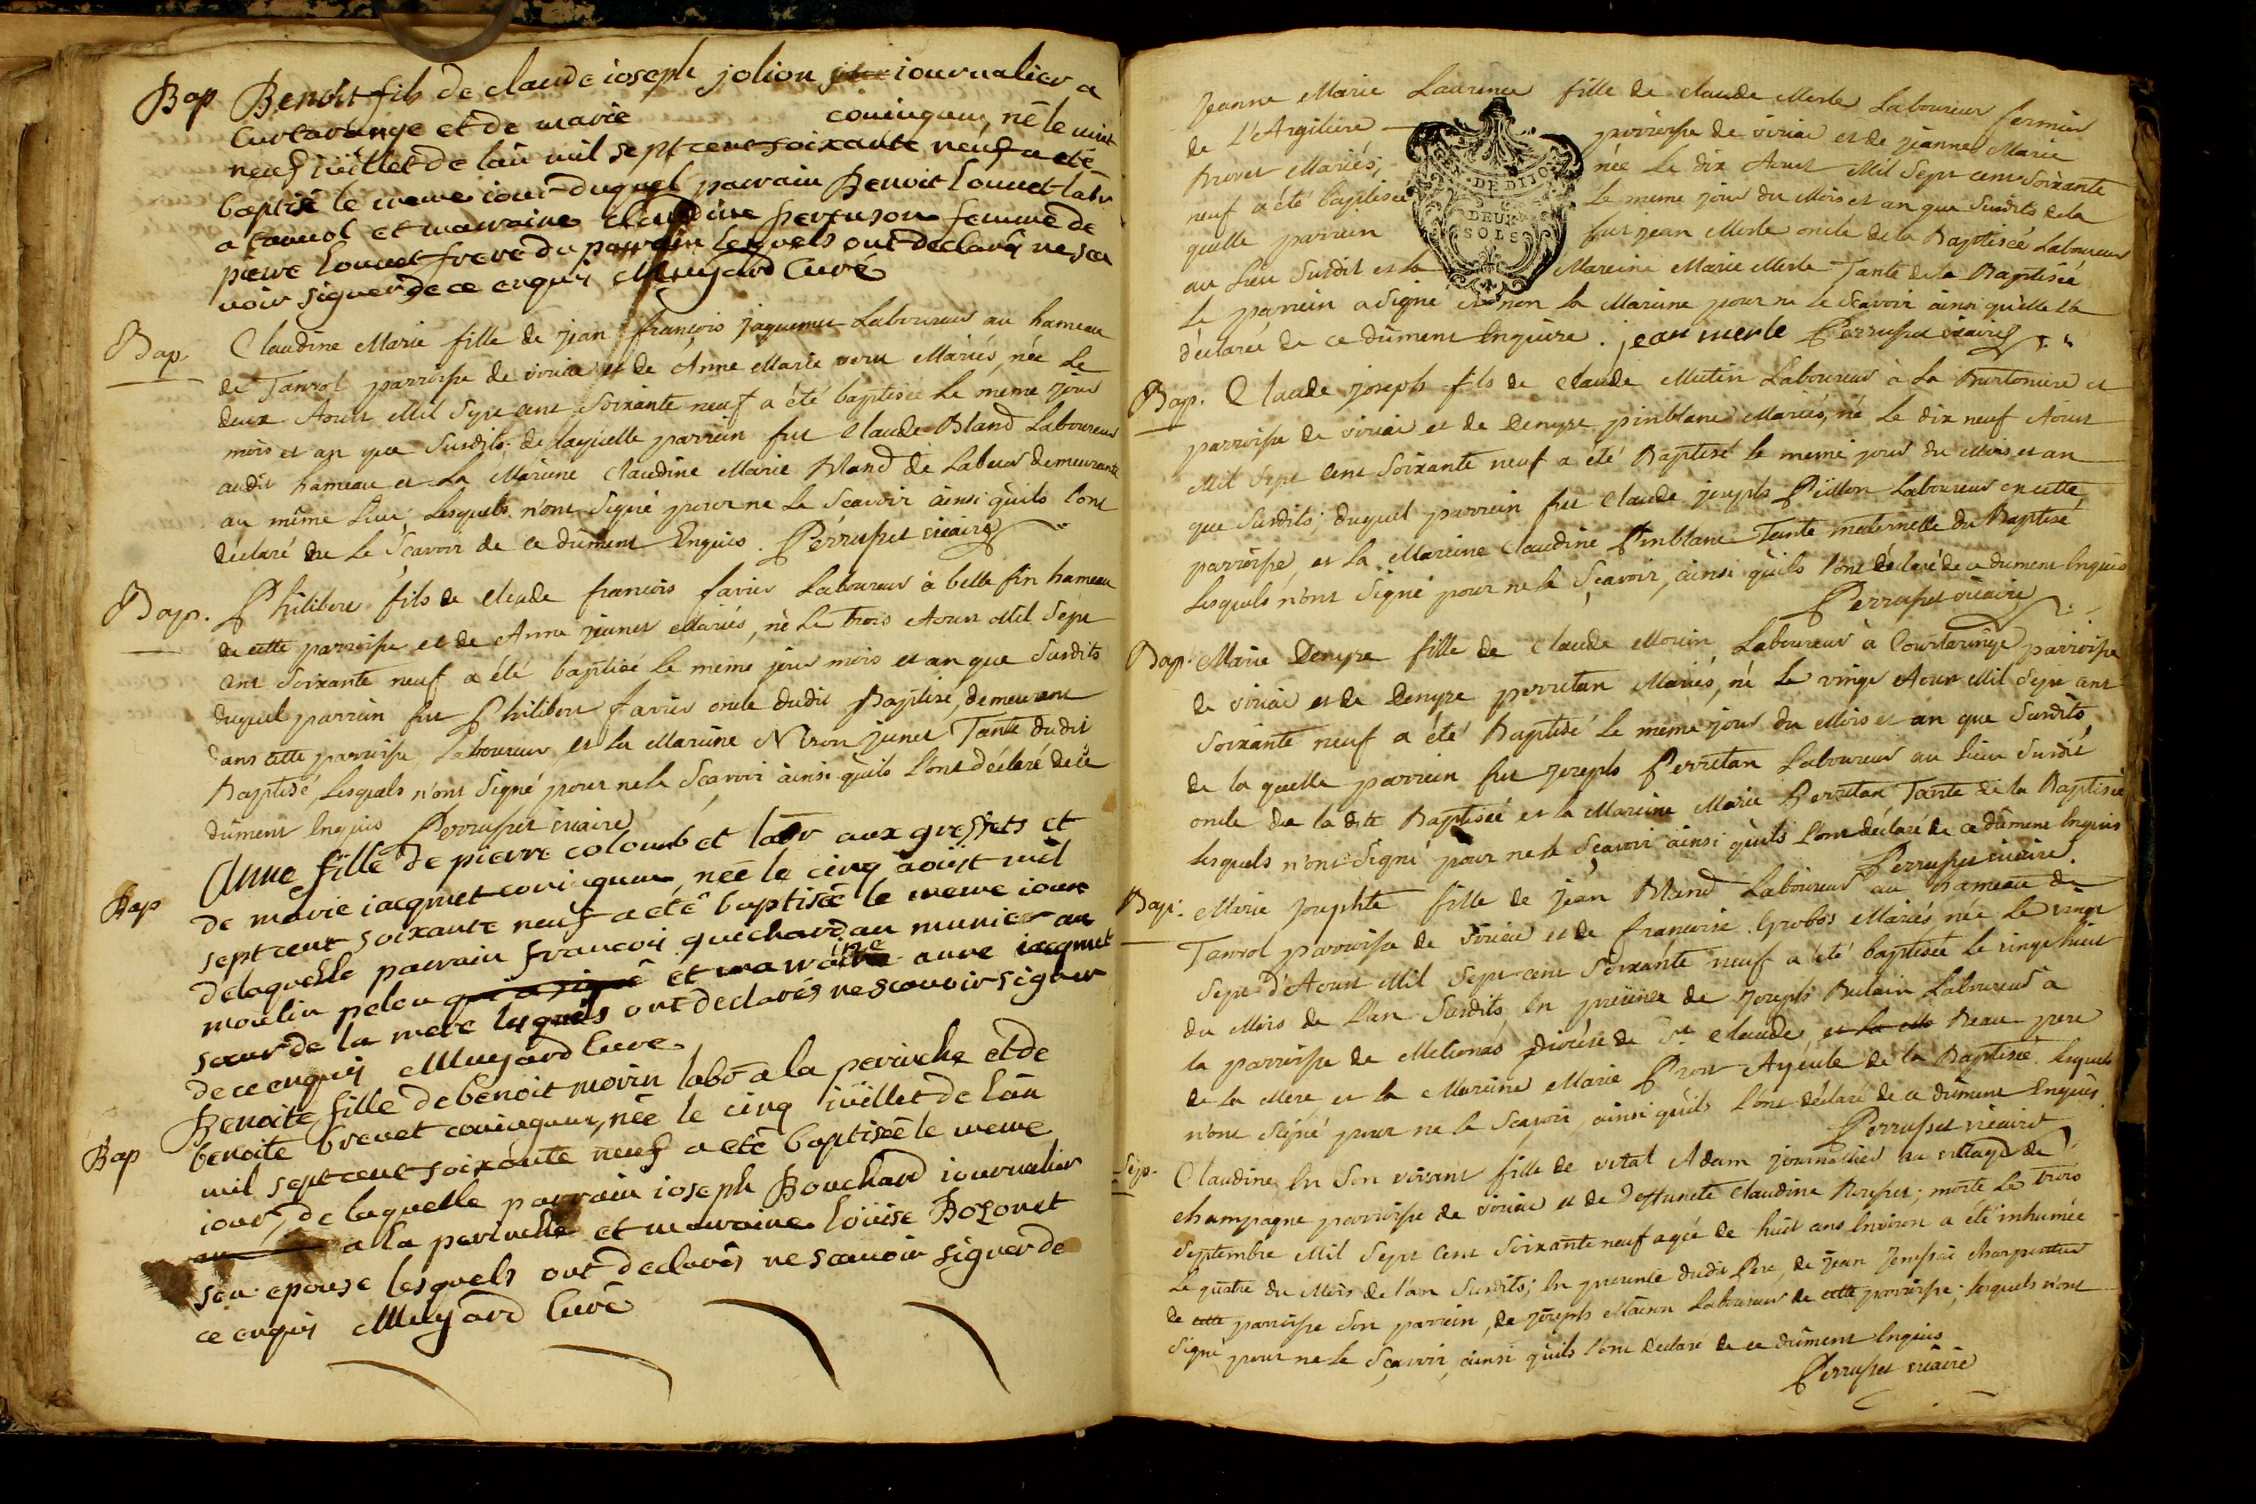 Bap Benoit fils de claude ioseph jolion iournalier a
Curtaringe et de marie coniugum, né le vint
neuf iüillet de lan mil sept cent soixante neuf a eté
baptisé le meme iour duquel parrain Benoit Louuet labr
a tanuol et marraine claudine perruson femme de
pierre Louuet frere du parrain lesquels ont declaré ne sca
uoir signer de ce enquis Muyard Curé
Bap. Claudine Marie fille de jean françois jaquemet Laboureur au hameau
de Tanvol parroisse de viriac et de Anne Marie veru Mariés, née Le
deux Aoust Mil Sept cent Soixante neuf a été baptisée Le meme jour
mois et an que Susdits; de laquelle parrein fut Claude Bland Laboureur
audit hameau et La Mareine Claudine Marie Bland de Labeur demeurante
au même Lieu; Lesquels n'ont Signé pour ne Le Sçavoir ainsi qu'ils l'ont
déclaré de Le Sçavoir de ce dûment Enquis. Perrusset vicaire
Bap. Philibert fils de Claude francois favier Laboureur à belle fin hameau
de cette parroisse et de Anne junet Mariés, né Le trois Aoust Mil Sept
Cent Soixante neuf a été baptisé Le meme jour mois et an que Susdits
duquel parrein fut Philibert favier oncle dudit Baptisé, demeurant
dans cette parroisse, Laboureur et La Mareine Niron junet Tante dudit
Baptisé, Lesquels n'ont Signé pour ne le Sçavoir ainsi qu'ils L'ont déclaré de ce
dûment Enquis Perrusset vicaire
Bap Anne fille de pierre colomb et labr aux greffets et
de marie iacquet coniugum née le cinq aoüst mil
sept cent soixante neuf a eté baptisée le meme iour
delaquelle parrain francois guichard au munier au
moulin peleu qui a signé et marraine anne iacquet
sœur de la mere lesquels ont declarés ne scauoir signer
de ce enquis Muyard Cure
Bap Benoite fille de benoit morin labr a la perinche et de
benoite brevet coniugum, née le cinq iüillet de lan
mil sept cent soixante neuf a eté baptisée le meme
iour, de laquelle parrain ioseph Bouchard iournalier
a la perinche et marraine loüise Bozonet
son epouse lesquels ont declarés ne scauoir signer de
ce enquis Muyard Curé
Jeanne Marie Laurence fille de claude Merle Laboureur fermier
de L'Argiliere parroisse de viriac et de jeanne Marie
Brevet Mariés, née Le dix Aoust Mil Sept cent Soixante
neuf a été baptisée Le meme jour du Mois et an que Susdits de la
quelle parrein fut jean Merle oncle de la Baptisée Laboureur
au Lieu Susdit et la Mareine Marie Merle Tante de la Baptisée
Le parrein a Signé et non La Mareine pour ne Le Sçavoir ainsi qu'elle l'a
déclarée de ce dûment Enquise. jean merle Perrusset vicaire
DE DIJON
DEUX
SOLS
Bap. Claude joseph fils de Claude Mutin Laboureur à La Burtoniere et
parroisse de viriac et de Denyse pinblanc Mariés, né Le dix neuf Aoust
Mil Sept Cent Soixante neuf a été Baptisé Le meme jour du Mois et an
que Susdits; duquel parrein fut Claude joseph Püllon Laboureur en cette
parroisse, et La Mareine Claudine Pinblanc Tante maternelle du Baptisé
Lesquels n'ont Signé pour ne le Sçavoir, ainsi qu'ils l'ont déclaré de ce dûment Enquis
Perrusset vicaire
Bap. Marie Denyse fille de Claude Morin Laboureur à Courtaringe parroisse
de viriac et de Denyse perretan Mariés, né Le vingt Aoust Mil Sept cent
Soixante neuf a été Baptisé Le meme jour du Mois et an que Susdits,
de la quelle parrein fut joseph Perretan Laboureur au Lieu Susdit
oncle de la dte Baptisée et la Mareine Marie Perretan Tante de la Baptisée
Lesquels n'ont Signé pour ne le Sçavoir ainsi qu'ils L'ont déclaré de ce dûment Enquis
Perrusset vicaire.
Bap. Marie josephte fille de jean Bland Laboureur au hameau de
Tanvol parroisse de viriac et de francoise Grobos Mariés née Le vingt
Sept d'Aoust Mil Sept cent Soixante neuf a été baptisée Le vingt huit
du Mois de L'an Susdits, En présence de joseph Laboureur à
la parroisse de Melionas Diocése de St Claude, et la Me Beau pere
de La Mere et La Mareine Marie Pront Ayeule de la Baptisée Lesquels
n'ont Signé pour ne le Sçavoir, ainsi qu'ils L'ont déclaré de ce dûment Enquis
Perrusset vicaire
Sép. Claudine En Son vivant fille de vital Adam journallier au village de
champagne parroisse de viriac et de deffuncte Claudine; morte Le trois
Septembre Mil Sept Cent Soixante neuf agée de huit ans Environ a été inhumée
Le quatre du Mois de l'an Susdits; En présence dudit Pere, de jean charpentier
de cette parroisse Son parrein, de joseph Laboureur de cette parroisse; lesquels n'ont
Signé pour ne Le Sçavoir, ainsi qu'ils l'ont déclaré de ce dûment Enquis
Perrusset vicaire